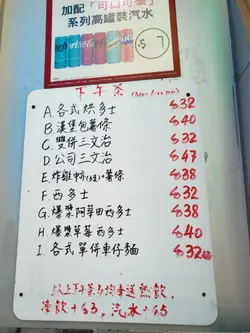 加配「可口可樂」
系列高罐裝汽水
$7
下午茶
A. 各式烘多士 $32
B. 漢堡包薯條 $40
C. 雙併三文治 $32
D. 公司三文治 $47
E. 炸雞中亦(3隻)+薯條 $38
F. 西多士 $32
G. 爆漿阿華田西多士 $38
H. 爆漿草莓西多士 $40
I. 各式單併車仔麵 $32
以上下午茶均送熱飲,
凍飲+$3, 汽水+$5